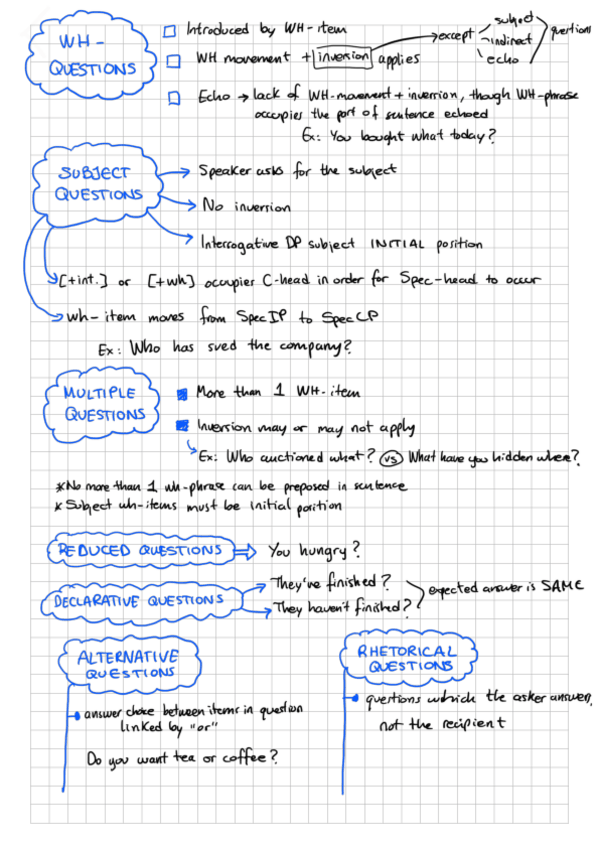 WH-
QUESTIONS
Introduced by WH-item
WH movement + inversion applies
except
subject
indirect
echo
questions
Echo → lack of WH-movement + inversion, though WH-phrase
occupies the part of sentence echoed
Ex: You bought what today?
SUBJECT
QUESTIONS
Speaker asks for the subject
No inversion
Interrogative DP subject INITIAL position
[+int.] or [+wh] occupies C-head in order for Spec-head to occur
wh-item moves from SpecIP to SpecCP
Ex: Who has sved the company?
MULTIPLE
QUESTIONS
More than 1 WH-item
Inversion may or may not apply
Ex: Who auctioned what? vs What have you hidden where?
*No more than 1 wh-phrase can be preposed in sentence
*Subject wh-items must be initial position
REDUCED QUESTIONS ⇒ You hungry?
DECLARATIVE QUESTIONS
They've finished?
They haven't finished?
expected answer is SAME
ALTERNATIVE
QUESTIONS
answer choice between items in question
linked by "or"
Do you want tea or coffee?
RHETORICAL
QUESTIONS
questions which the asker answers,
not the recipient